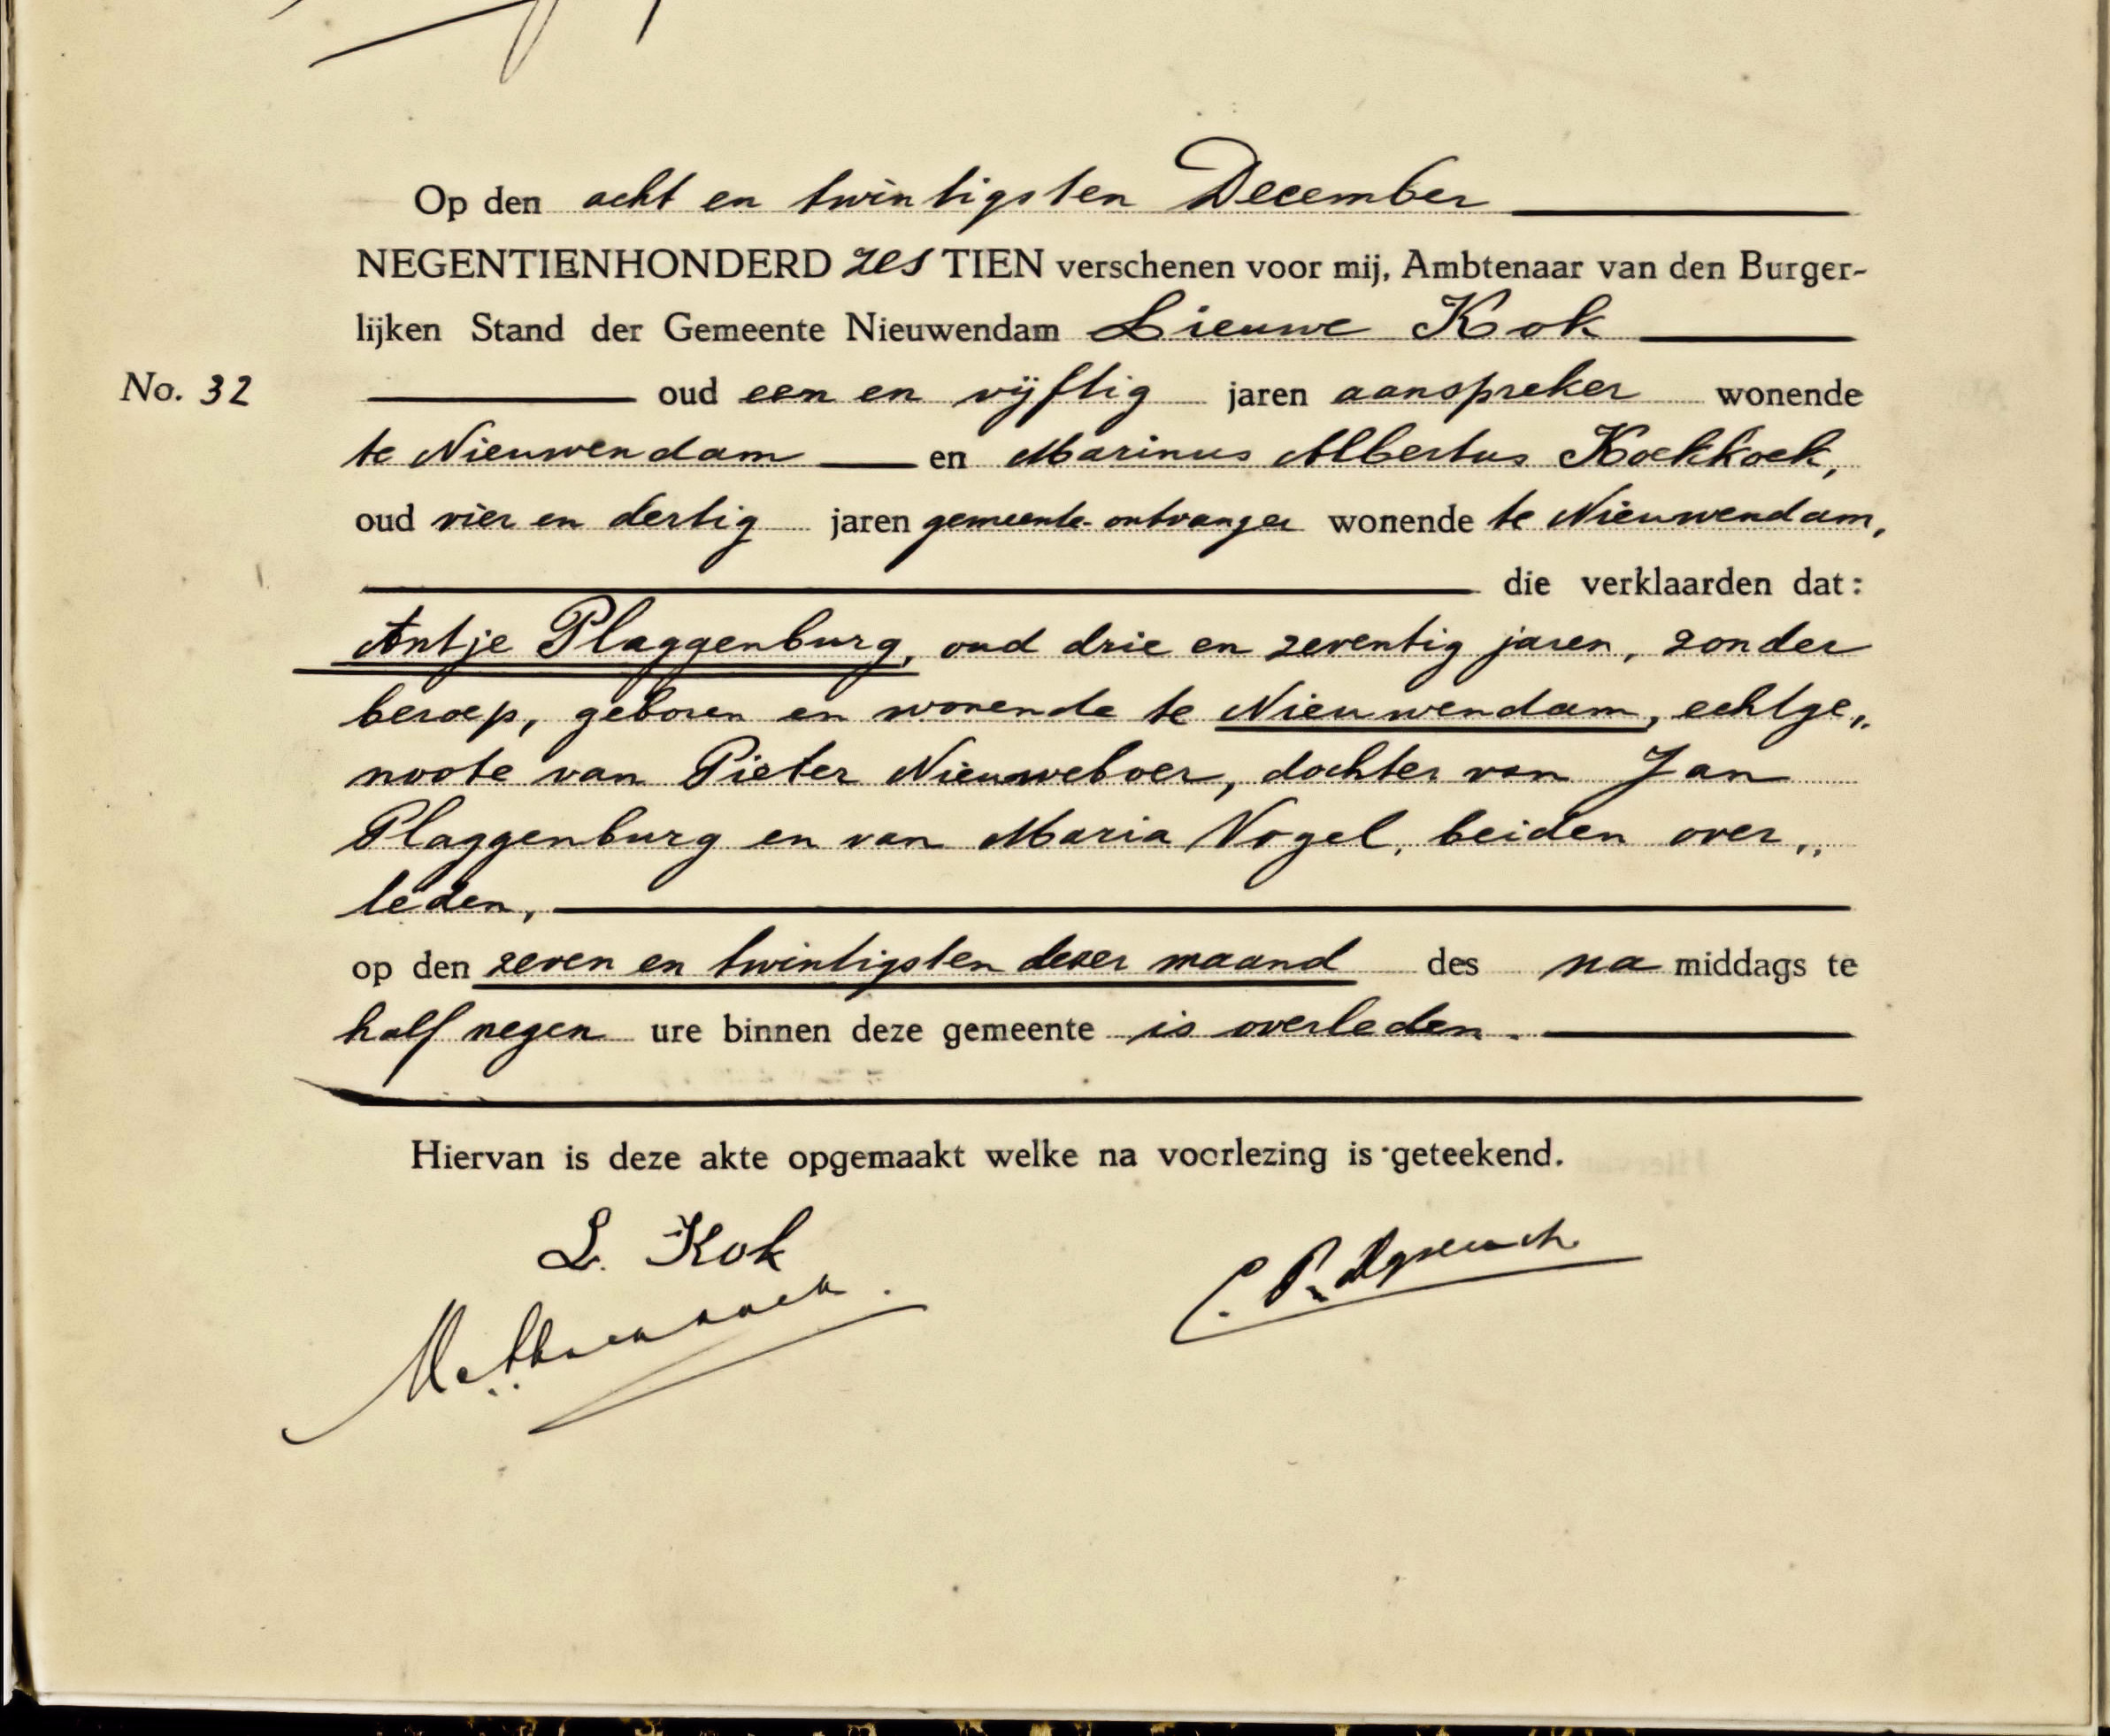 Op den acht en twintigsten December
NEGENTIENHONDERD zes TIEN verschenen voor mij, Ambtenaar van den Burger-
lijken Stand der Gemeente Nieuwendam Lieuwe Kok
No. 32 oud een en vijftig jaren aanspreker wonende
te Nieuwendam en Marinus Albertus Koekkoek,
oud vier en dertig jaren gemeente-ontvanger wonende te Nieuwendam,
die verklaarden dat:
Antje Plaggenburg, oud drie en zeventig jaren, zonder
beroep, geboren en wonende te Nieuwendam, echtge„
noote van Pieter Nieuweboer, dochter van Jan
Plaggenburg en van Maria Vogel, beiden over„
leden,
op den zeven en twintigsten dezer maand des na middags te
half negen ure binnen deze gemeente is overleden.
Hiervan is deze akte opgemaakt welke na voorlezing is geteekend.
L. Kok